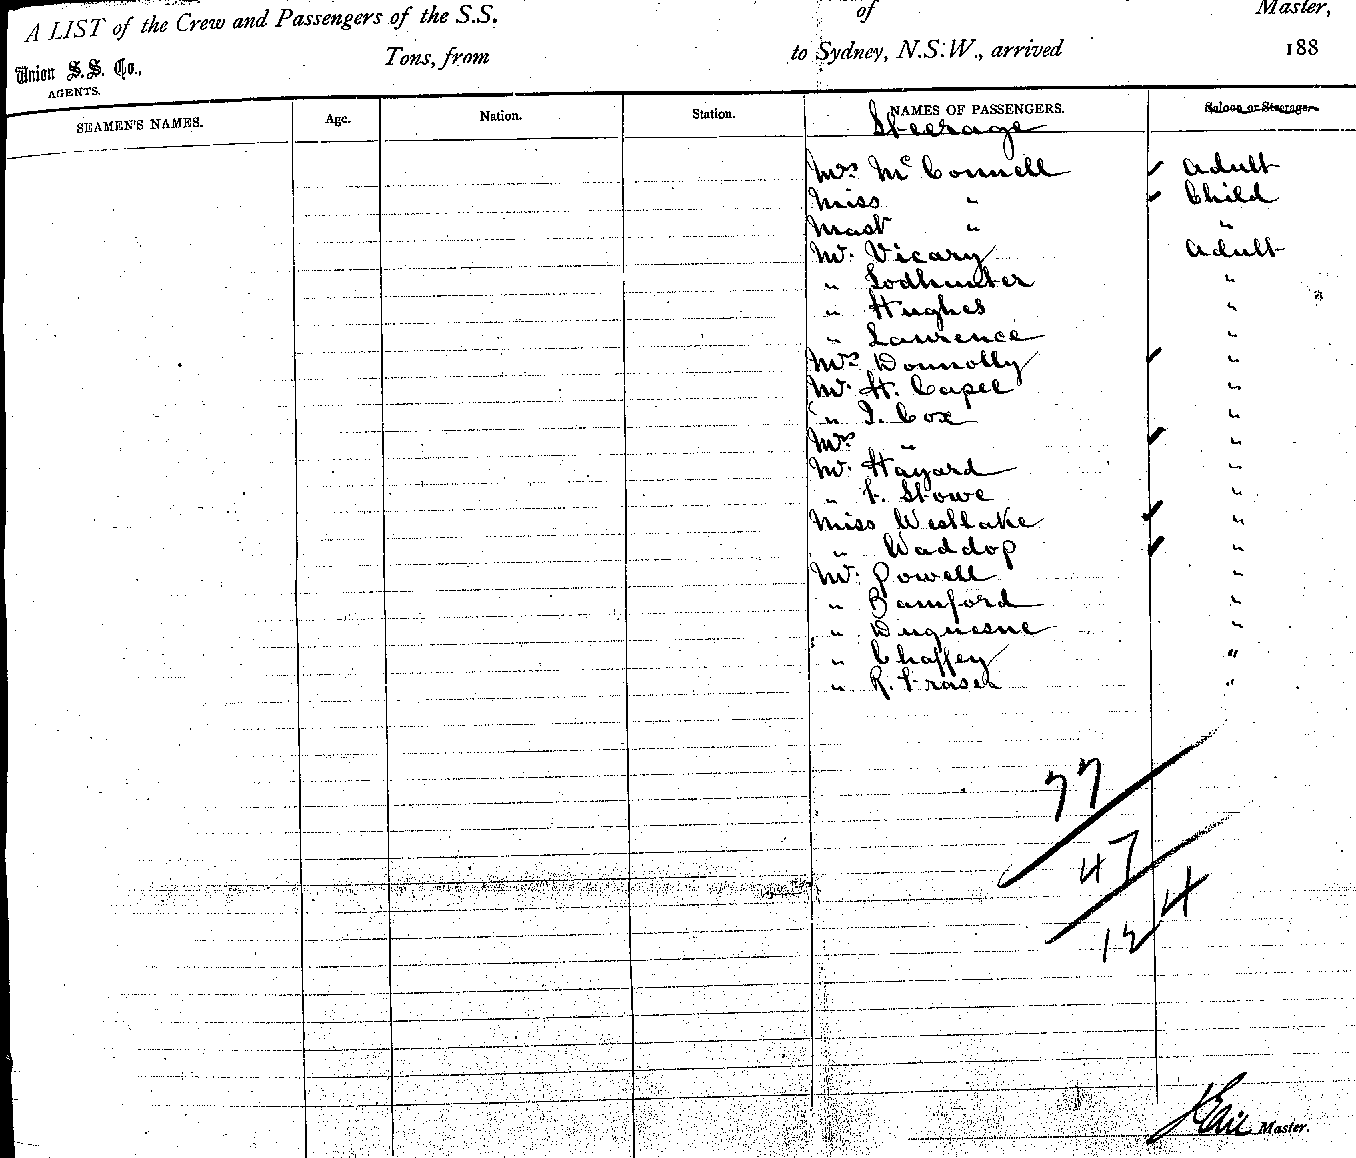 A LIST of the Crew and Passengers of the S.S. of Master,
Union S.S. Co., Tons, from to Sydney, N.S.W., arrived 188
AGENTS.
SEAMEN'S NAMES. Age. Nation. Station. NAMES OF PASSENGERS. Saloon or Steerage.
Steerage
Mrs McConnell Adult
Miss " Child
Mast " "
Mr. Vicary Adult
" Lodhunter "
" Hughes "
" Lawrence "
Mrs Donnolly "
Mr. H. Capel "
" J. Cox "
Mrs " "
Mr. Hayard "
" F. Stowe "
Miss Westlake "
" Waddop "
Mr. Powell "
" Bamford "
" Duquesne "
" Chaffey "
" R. Fraser "
77
47
124
Master.